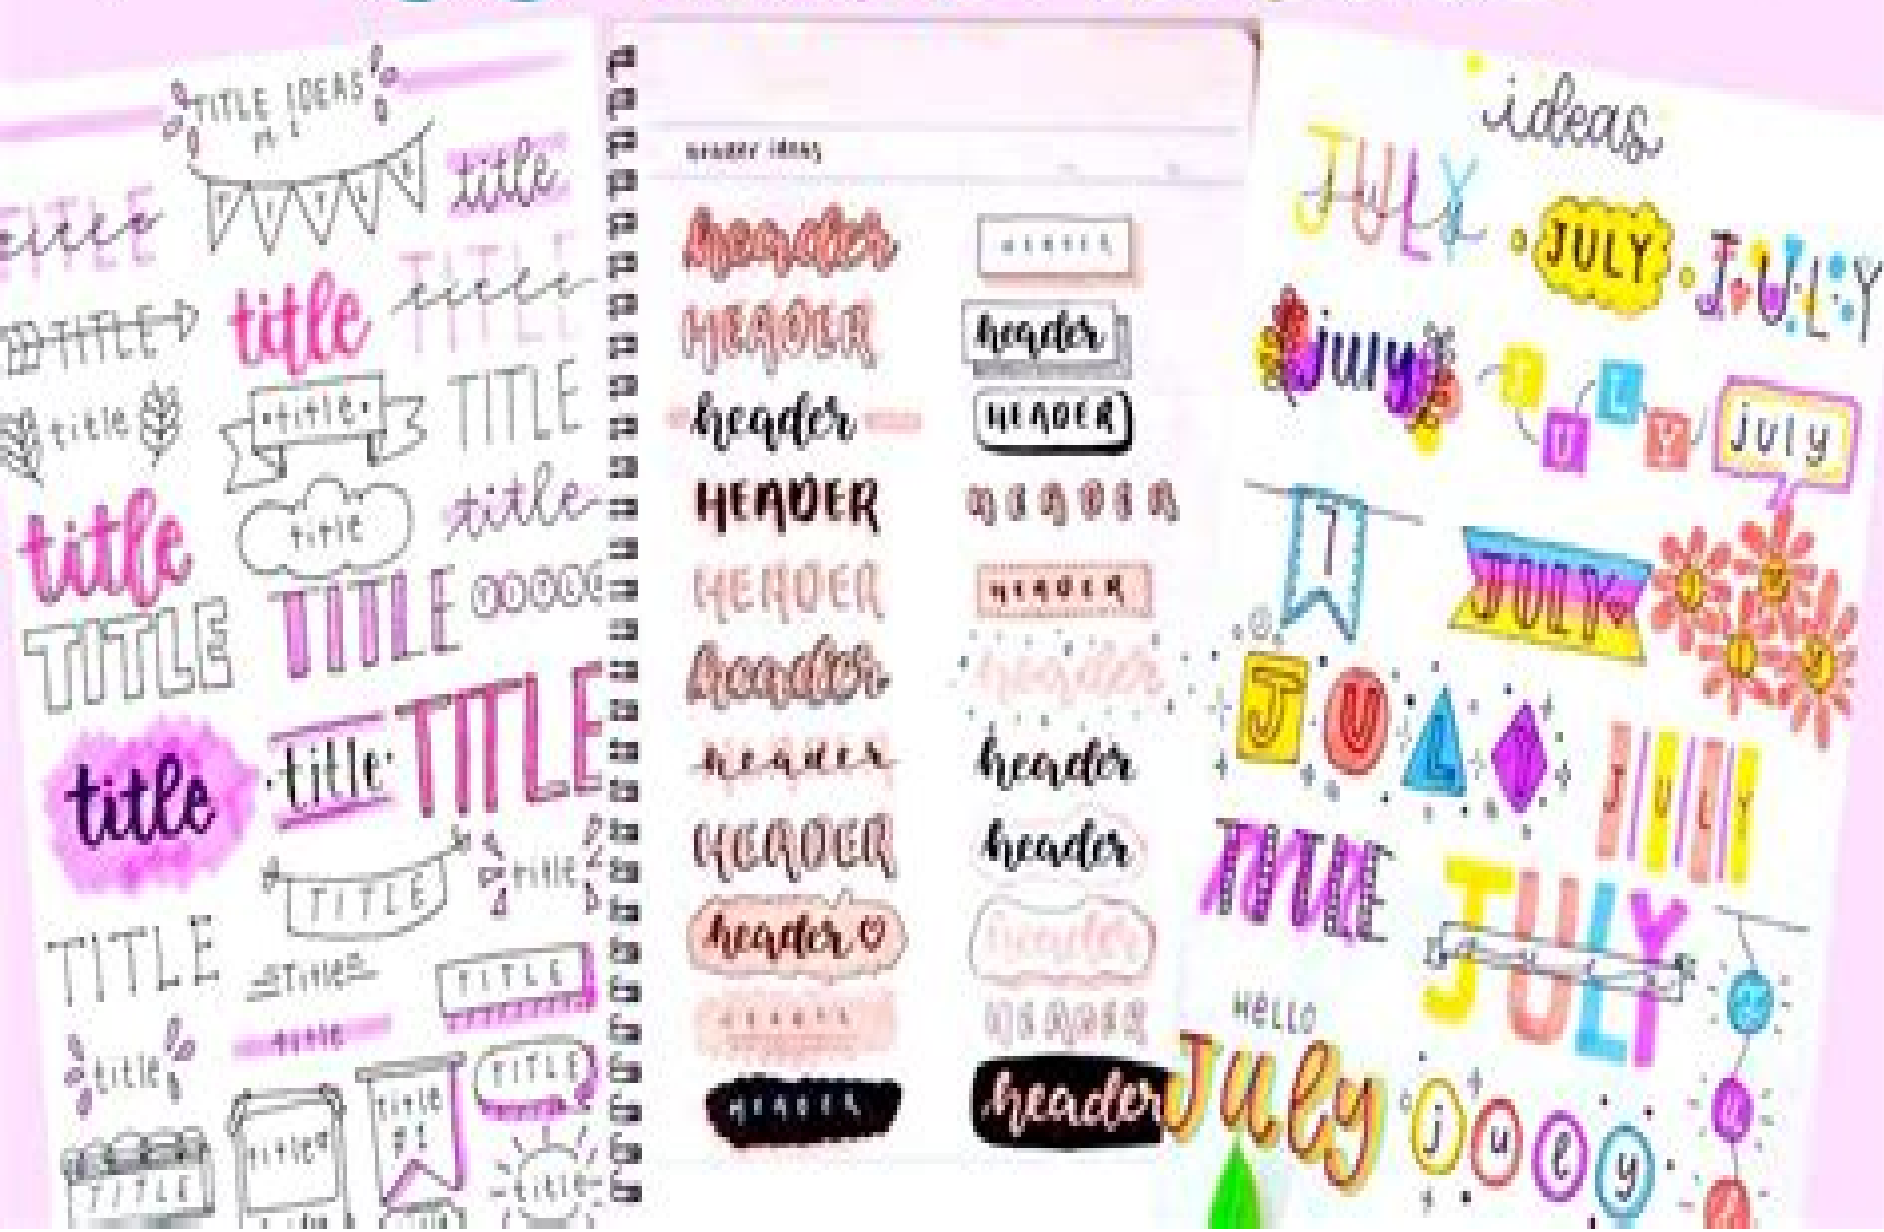 TITLE IDEAS
pt 2
TITLE
title
TITLE
title
TITLE
title
TITLE
title
title
title
TITLE
title
title
title
TITLE
TITLE
TITLE
title
title
TITLE
TITLE
title
TITLE
title
TITLE
title
title
TITLE
title
title
pt
title
TITLE
title
header ideas
header
HEADER
HEADER
header
header
HEADER
HEADER
HEADER
HEADER
HEADER
header
header
header
header
HEADER
header
header
header
HEADER
HEADER
HEADER
header
ideas
JULY
JULY
JULY
july
JULY
july
7
JULY
JULY
JULY
JULY
TITLE
JULY
HELLO
July
july